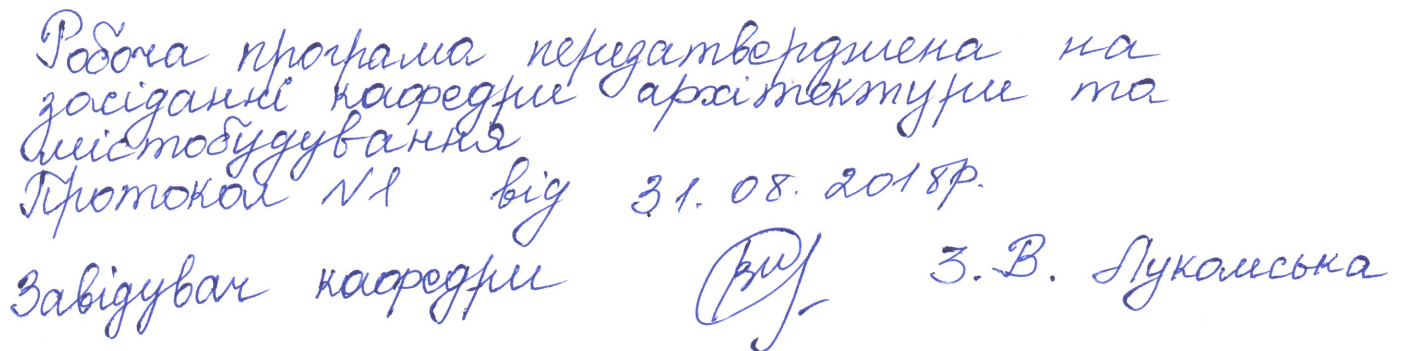 Робоча програма перезатверджена на
засіданні кафедри архітектури та
містобудування
Протокол №1 від 31.08.2018р.
Завідувач кафедри З.В. Лукомська